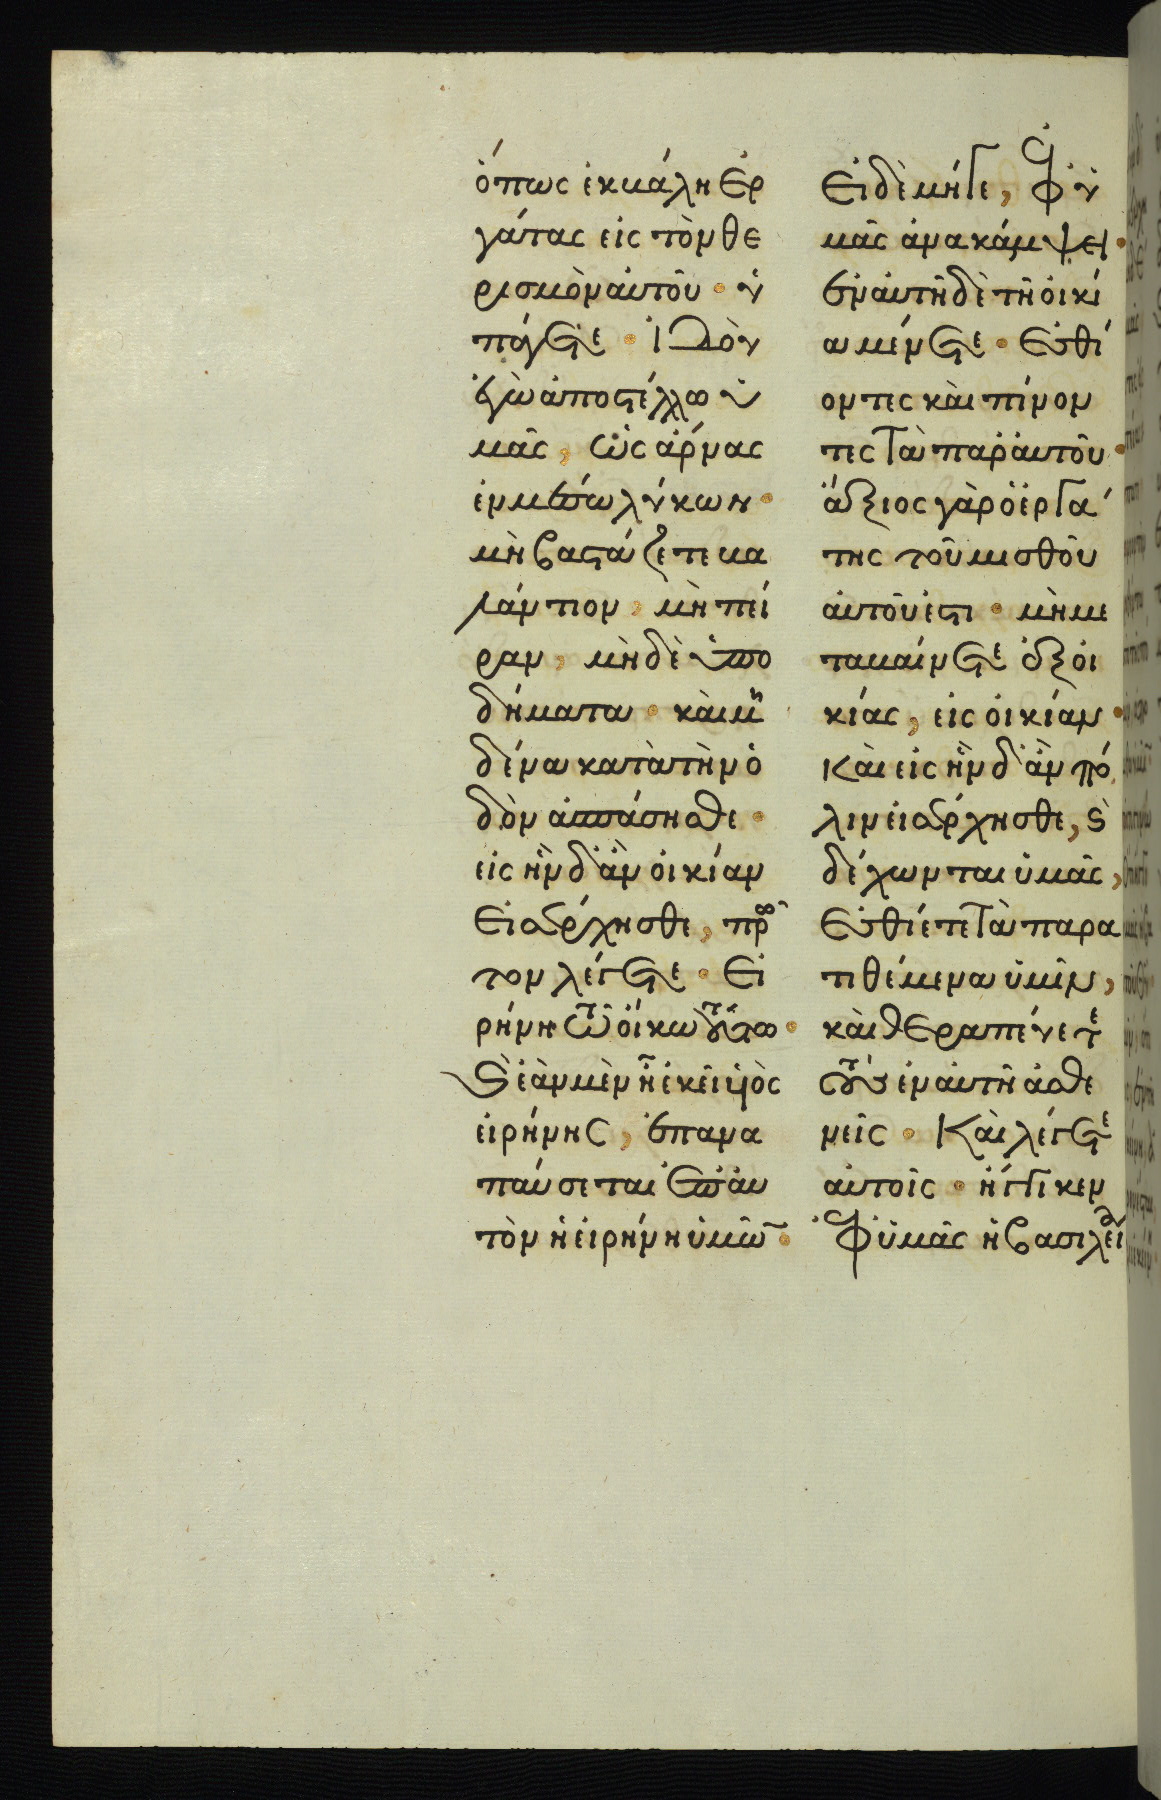 ὅπως ἐκβάλη ἐρ
γάτας εἰς τὸν θε
ρισμὸν αὐτοῦ · ὑ
πάγετε · ἰδοὺ
ἐγὼ ἀποστέλλω ὑ
μᾶς, ὡς ἄρνας
ἐν μέσω λύκων ·
μὴ βαστάζετε βα
λάντιον, μὴ πή
ραν, μηδὲ ὑπο
δήματα · καὶ μη
δένα κατὰ τὴν ὁ
δὸν ἀσπάσησθε ·
εἰς ἣν δ' ἂν οἰκίαν
εἰσέρχησθε, πρῶ
τον λέγετε · εἰ
ρήνη τῶ οἴκω τούτω ·
καὶ ἐὰν μὲν ῇ ἐκεῖ υἱὸς
εἰρήνης, ἐπανα
παύσεται ἐπ' αὐ
τὸν ἡ εἰρήνη ὑμῶν ·
εἰ δὲ μήγε, ἐφ' ὑ
μᾶς ἀνακάμψει ·
ἐν αὐτῆ δὲ τῆ οἰκί
α μένετε · ἐσθί
οντες καὶ πίνον
τες τὰ παρ' αὐτοῦ ·
ἄξιος γὰρ ὁ ἐργά
της τοῦ μισθοῦ
αὐτοῦ ἐστι · μὴ με
ταβαίνετε ἐξ οἰ
κίας, εἰς οἰκίαν ·
καὶ εἰς ἣν δ' ἂν πό
λιν εἰσέρχησθε, καὶ
δέχωνται ὑμᾶς,
ἐσθίετε τὰ παρα
τιθέμενα ὑμῖν,
καὶ θεραπεύετε
τοὺς ἐν αὐτῆ ἀσθε
νεῖς · καὶ λέγετε
αὐτοῖς · ἤγγικεν
ἐφ' ὑμᾶς ἡ βασιλεί